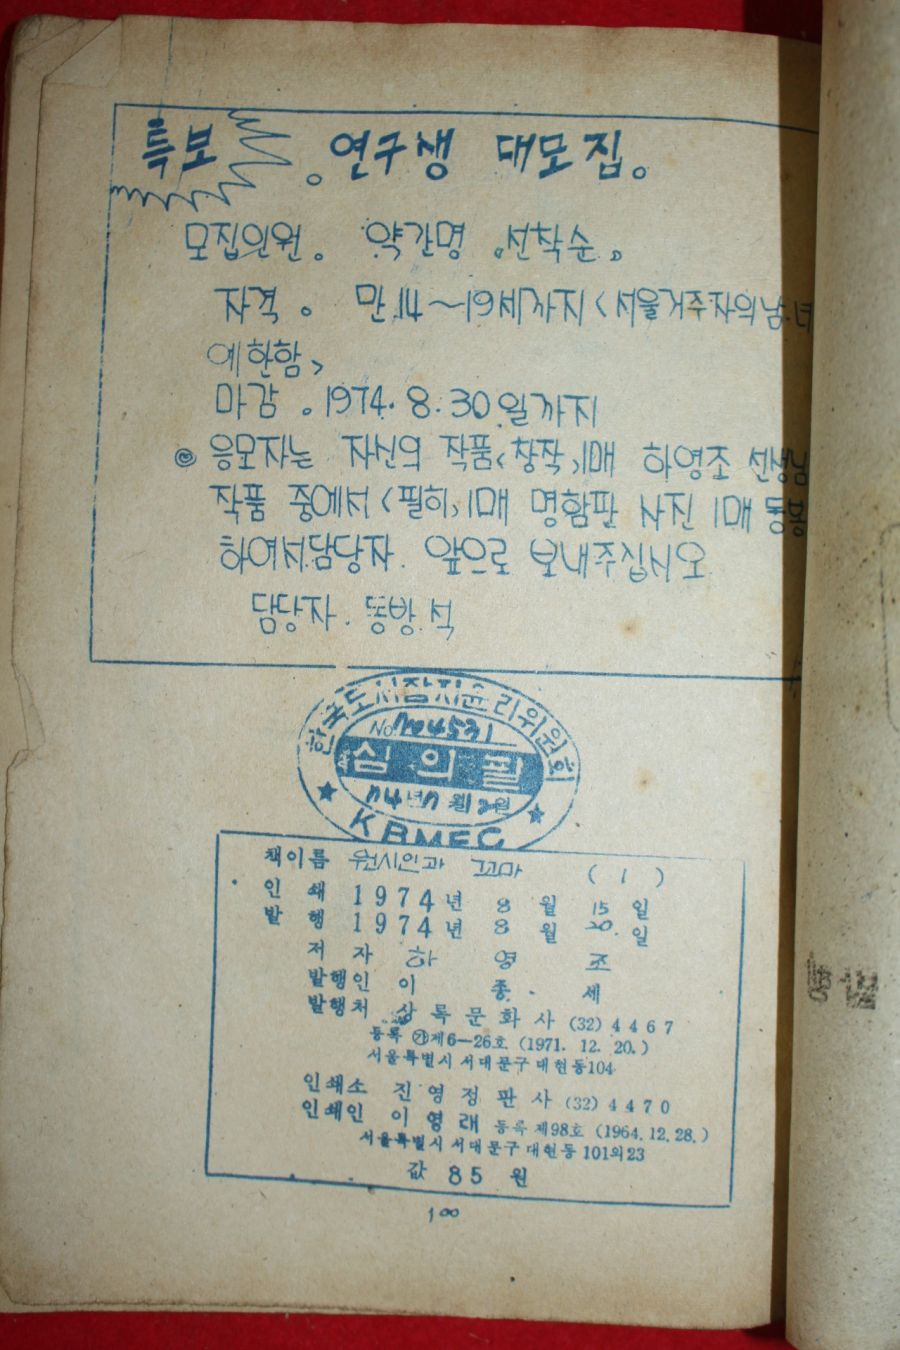 특보 。연구생 대모집。
모집인원。 약간명 。선착순。
자격。 만 14~19세까지 <서울거주자의 남.녀
에 한함>
마감。1974.8.30일까지
◎ 응모자는 자신의 작품<창작>1매 하영조 선생님
작품 중에서 <필히>1매 명함판 사진 1매 동봉
하여서 담당자 앞으로 보내주십시오
담당자. 동방석
한국도서잡지윤리위원회
No
심의필
KBMEC
책이름 원시인과 꼬마 (1)
인쇄 1974년 8월 15일
발행 1974년 8월 20.일
저자 하영조
발행인 이종세
발행처 상록문화사 (32) 4467
등록 ㉮제6-26호 (1971. 12. 20.)
서울특별시 서대문구 대현동104
인쇄소 진영정판사 (32) 4470
인쇄인 이영래 등록 제98호 (1964. 12. 28.)
서울특별시 서대문구 대현동 101의23
값 85원
100